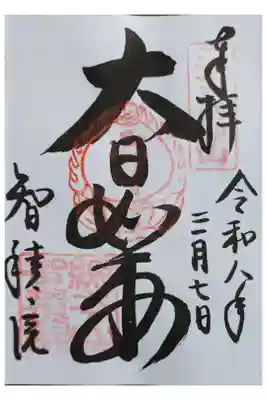 奉拝
令和八年
二月七日
大日如来
智積院